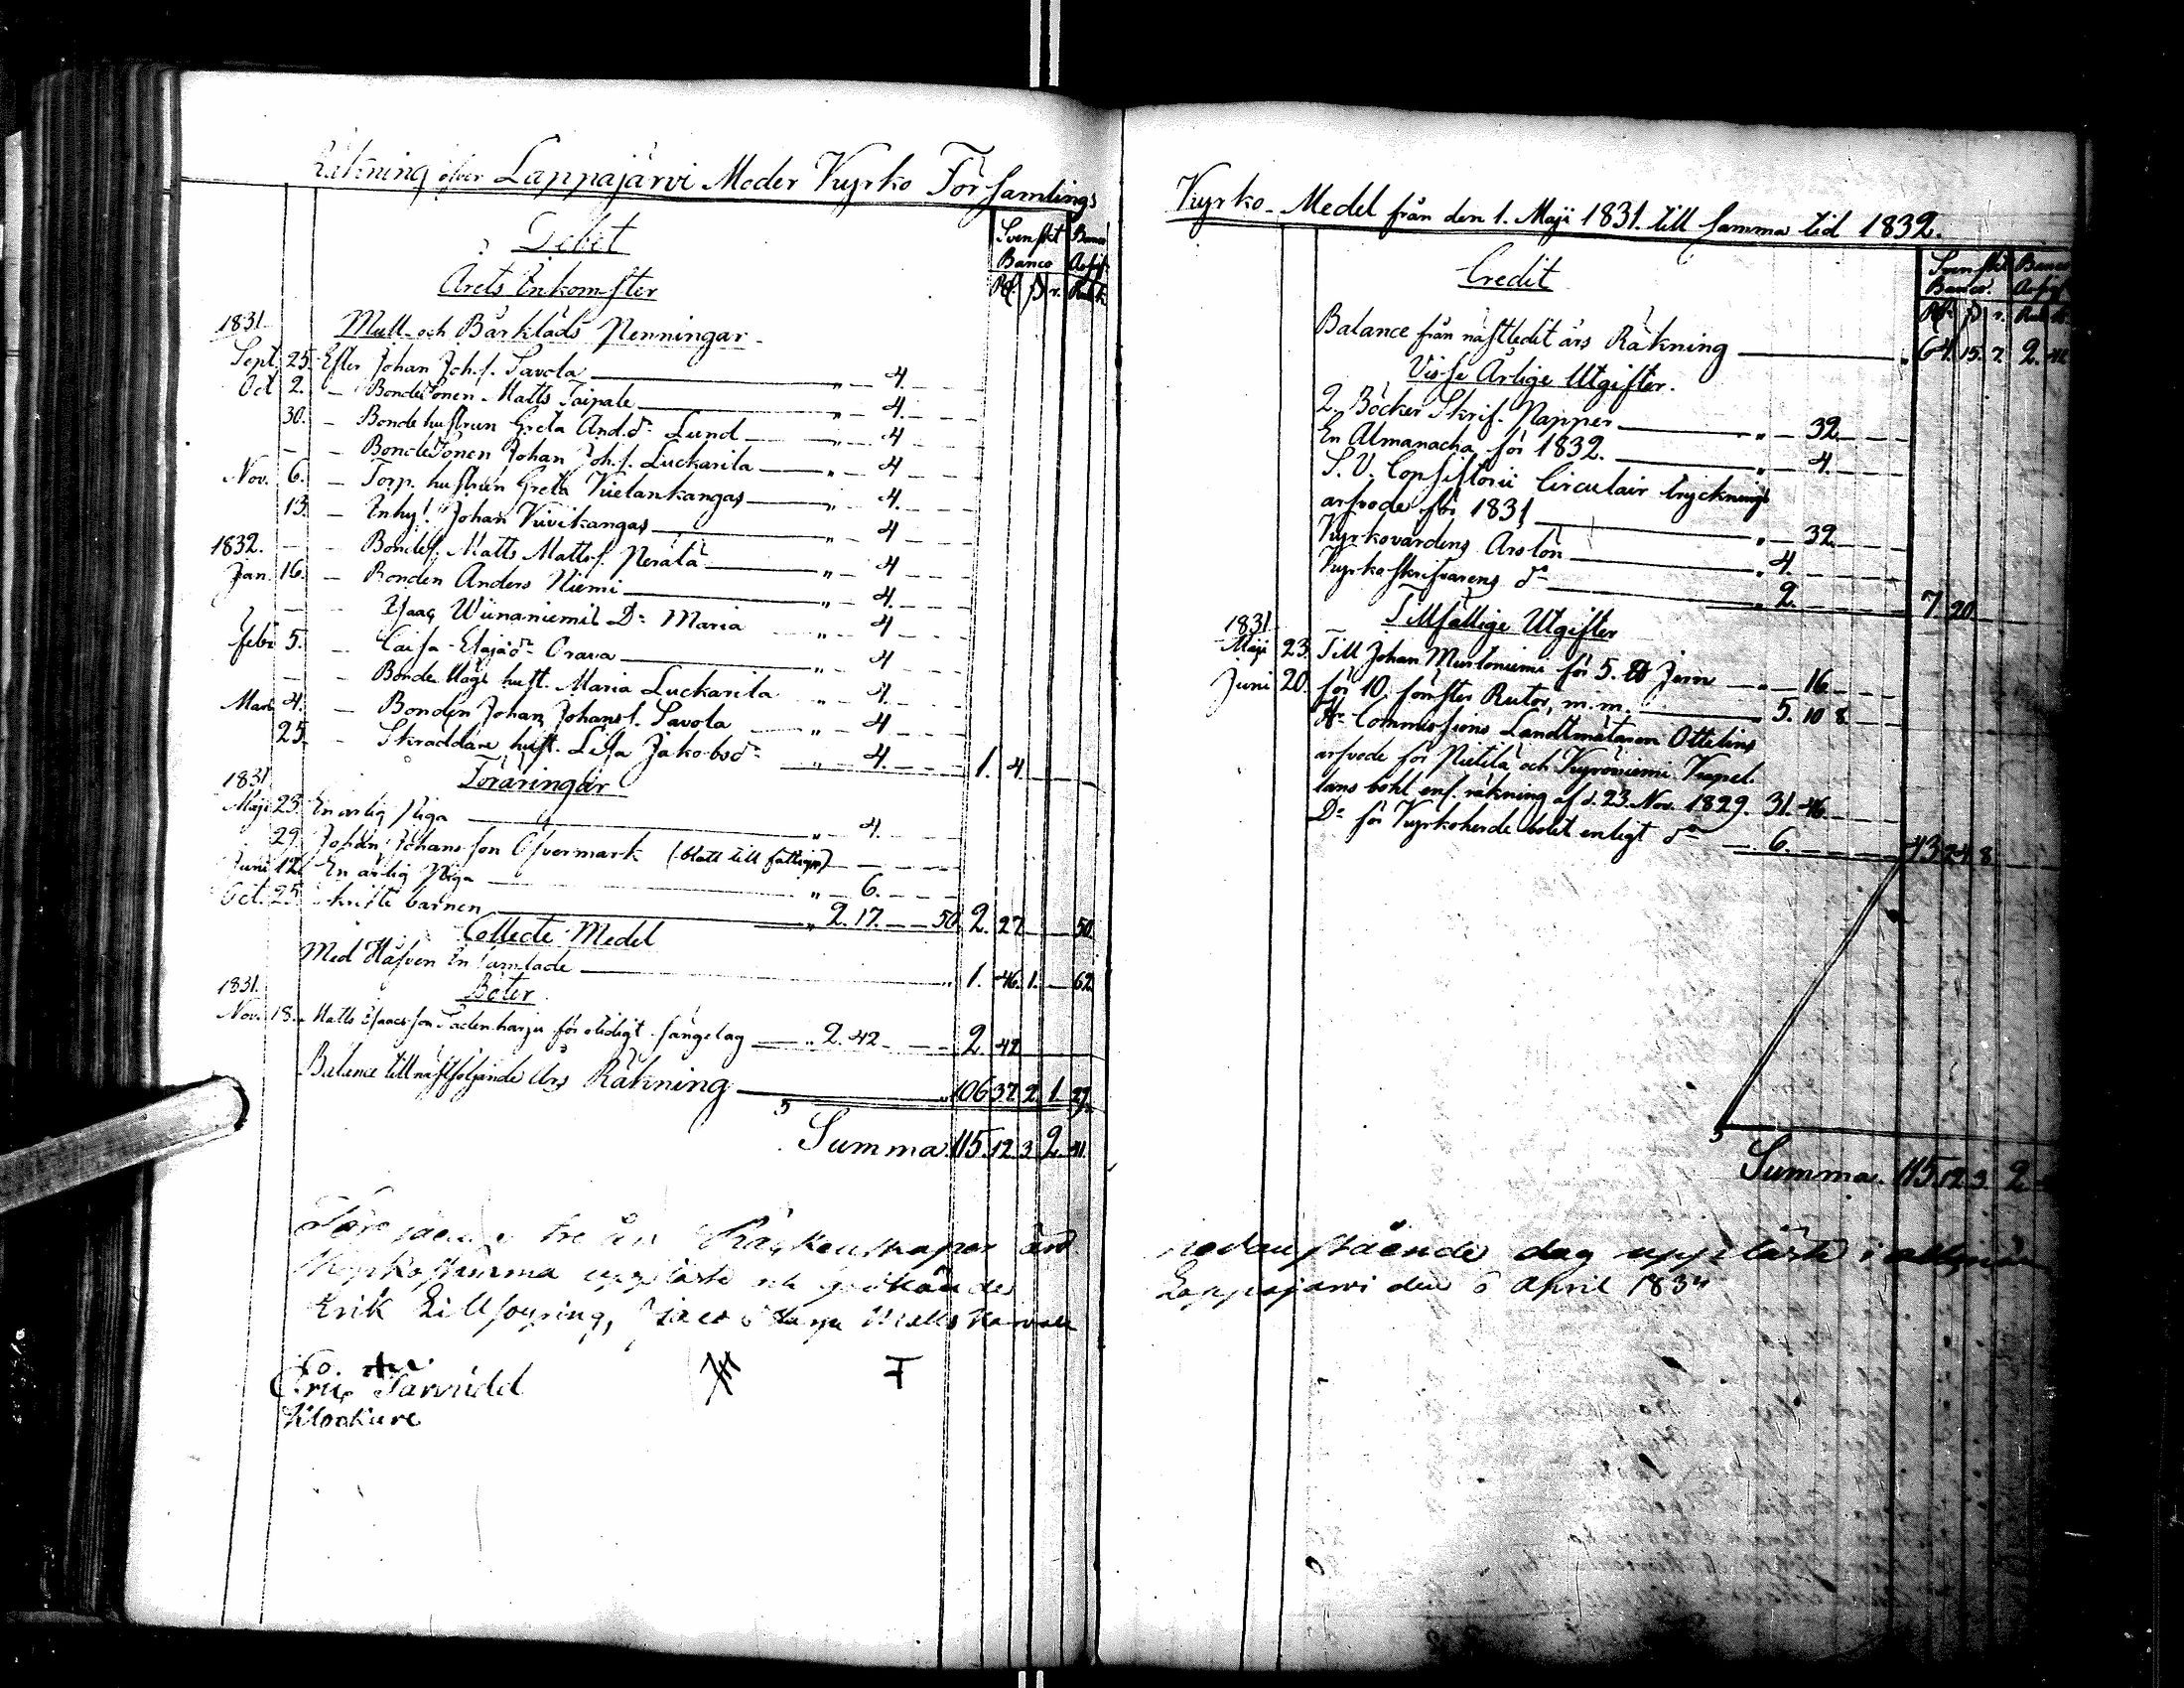 Räkning öfver Lappajärvi Moder Kyrko Församlings
Debet
Svenskt Banco
Banco Assig.
Rd. ß r. Rub. k.
Årets Inkomster
1831. Mull- och Bårkläds Penningar
Sept. 25. Efter Johan Joh.s. Savola " 4.
Oct. 2. – Bondesonen Matts Taipale " 4.
30. – Bonde hustrun Greta And.dr Lund " 4
– – Bondesonen Johan Joh.s. Luckarila " 4
Nov. 6. – Torp. hustrun Greta Kielankangas " 4.
13. – Inhy. Johan Viivikangas " 4
– – Bondes. Matts Matts.s. Perälä " 4
1832.
Jan. 16. – Bonden Anders Niemi " 4.
– – Isaac Wiinaniemis Dr Maria " 4
Febr. 5. – Caisa Elsajædr Orava " 4
– – Bonde Mågs hust. Maria Luckarila " 4.
Mars 4. – Bonden Johan Johanss. Savola " 4
25. – Skräddare hust. Lisa Jakobsdr " 4. 1. 4.
1831. Föräringar
Maji 23. En ärlig Piga " 4.
29. Johan Johansson Öfvermark
Juni 12. En ärlig Piga " 6.
Oct. 25. Skrifte barnen " 2. 17. 50. 2. 27 50.
Collecte Medel
Med Håfven Insamlade " 1. 46. 1. 62.
1831. Böter
Nov. 18. Matts Isaacsson för otidigt sängelag " 2. 42 2. 42
Balance till nästföljande års Räkning " 106 37 2 1. 29.
Summa 115. 12. 3. 2. 41.
tre års Räkenskaper
Kyrkostämma uppläste och godkändes
Erik Lillsoyring, Matts
Eric
Klockare
Kyrko-Medel från den 1. Maji 1831. till samma tid 1832.
Credit
Svenskt Banco.
Banco Assig.
Rd. ß r. Rub. k.
Balance från nästledit års Räkning " 64. 15. 7 2. 41.
Visse Årlige Utgifter.
2. Böcker Skrif-Papper " 32.
En Almanacha för 1832. " 4.
S. V. Consistorii Circulair trycknings
arfvode för 1831 " 32.
Kyrkovärdens Årslön " 4.
Kyrkoskrifvarens do " 2. 7. 20.
1831. Tillfällige Utgifter
Maji 23. Till Johan Murtoniemi för 5. ℔ Jern " 16
Juni 20. för 10. fönster Rutor, m.m. " 5. 10 8.
Hr Commissions Landtmätaren Ottelins
arfvode för Pietilä och Kyröniemi Kapel-
lans bohl enl. räkning af d. 23. Nov. 1829. 31. 46
Do för Kyrkoherde bolet enligt do 6. 43 24. 8.
Summa. 115. 12. 3. 2
nedanstående dag uppläste i allmän
Lappajärvi den 6 April 1834